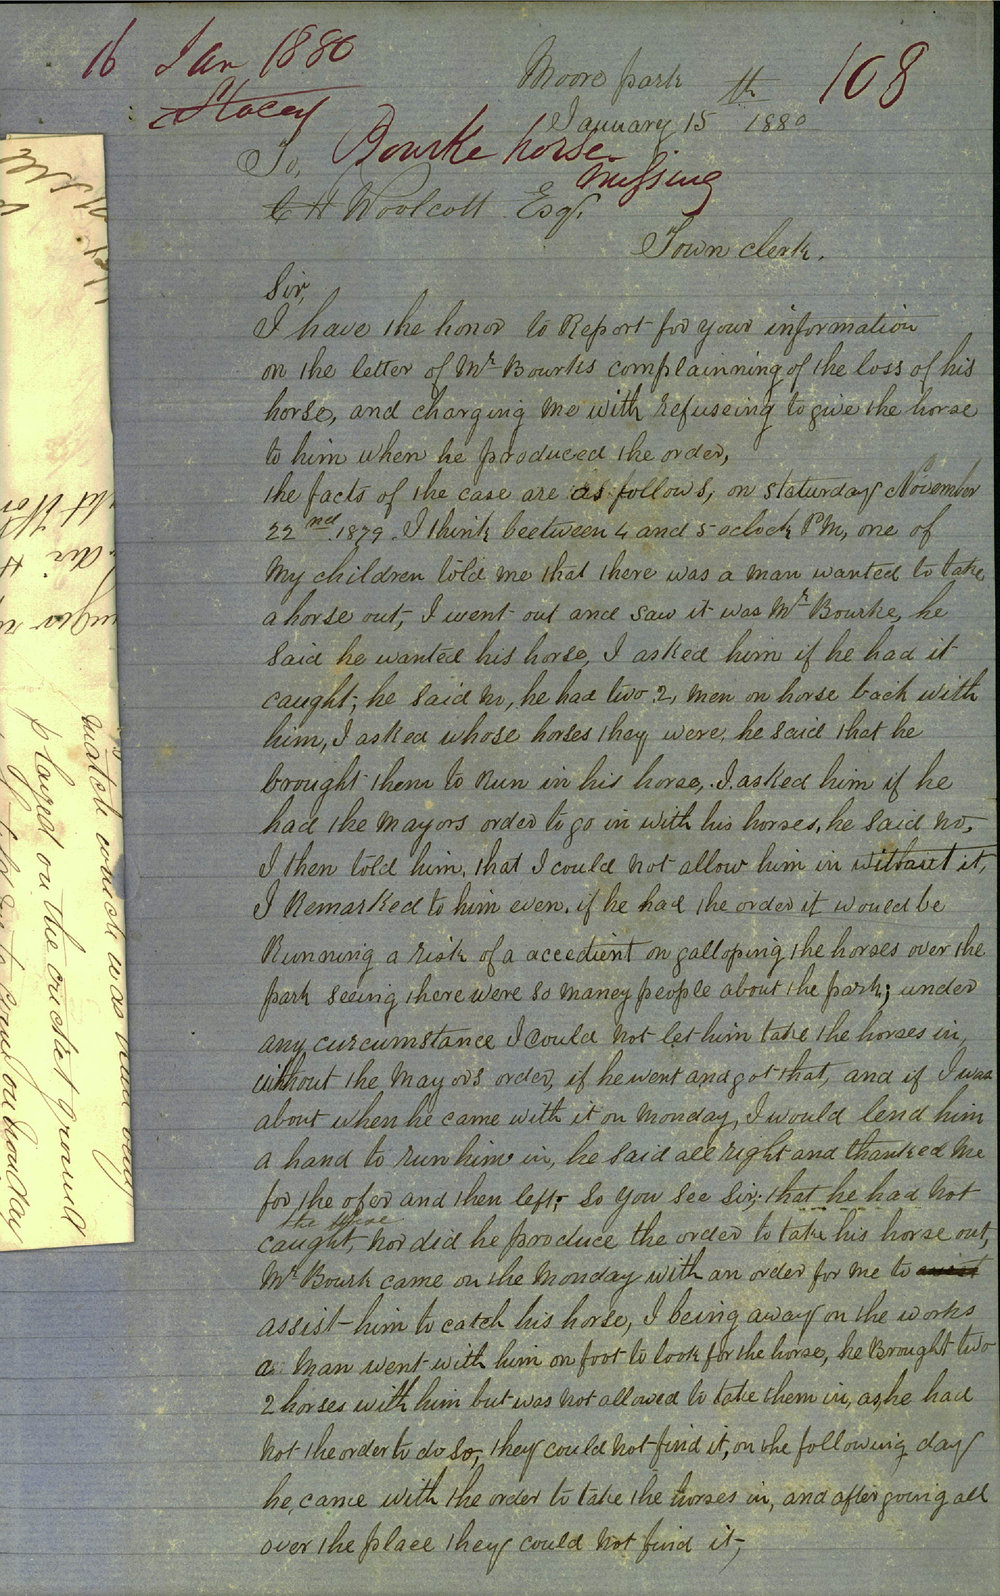 16 Jan 1880
Stacey
108
Moore park
January 15th 1880
Bourke horse
missing
To,
C H Woolcott Esqr.
Town clerk.
Sir,
I have the honor to Report for your information
on the letter of Mr Bourks complainning of the loss of his
horse, and charging me with refuseing to give the horse
to him when he produced the order,
the facts of the case are as follows, on Staturday November
22nd 1879. I think beetween 4 and 5 oclock PM, one of
My children told me that there was a man wanted to take
a horse out, I went out and saw it was Mr Bourke, he
said he wanted his horse, I asked him if he had it
caught; he said no, he had two 2, men on horse back with
him, I asked whose horses thay were, he said that he
brought them to Run in his horse, I asked him if he
had the Mayors order to go in with his horses, he said no,
I then told him, that I could not allow him in without it,
I Remarked to him even, if he had the order it would be
Running a risk of a accedient on galloping the horses over the
park seeing there were so maney people about the park; under
any curcumstance I could not let him take the horses in,
without the Mayors order, if he went and got that, and if I was
about when he came with it on Monday, I would lend him
a hand to run him in, he said all right and thanked me
for the ofer and then left; So you see Sir; that he had not
the horse
caught, nor did he produce the order to take his horse out,
Mr Bourk came on the Monday with an order for me to
assist him to catch his horse, I being away on the works
a man went with him on foot to look for the horse, he Brought two
2 horses with him but was not allowed to take them in, as he had
not the order to do so, they could not find it, on the following day
he, came with the order to take the horses in, and after going all
over the place they could not find it,
match which was
played on the cricket ground
on Monday